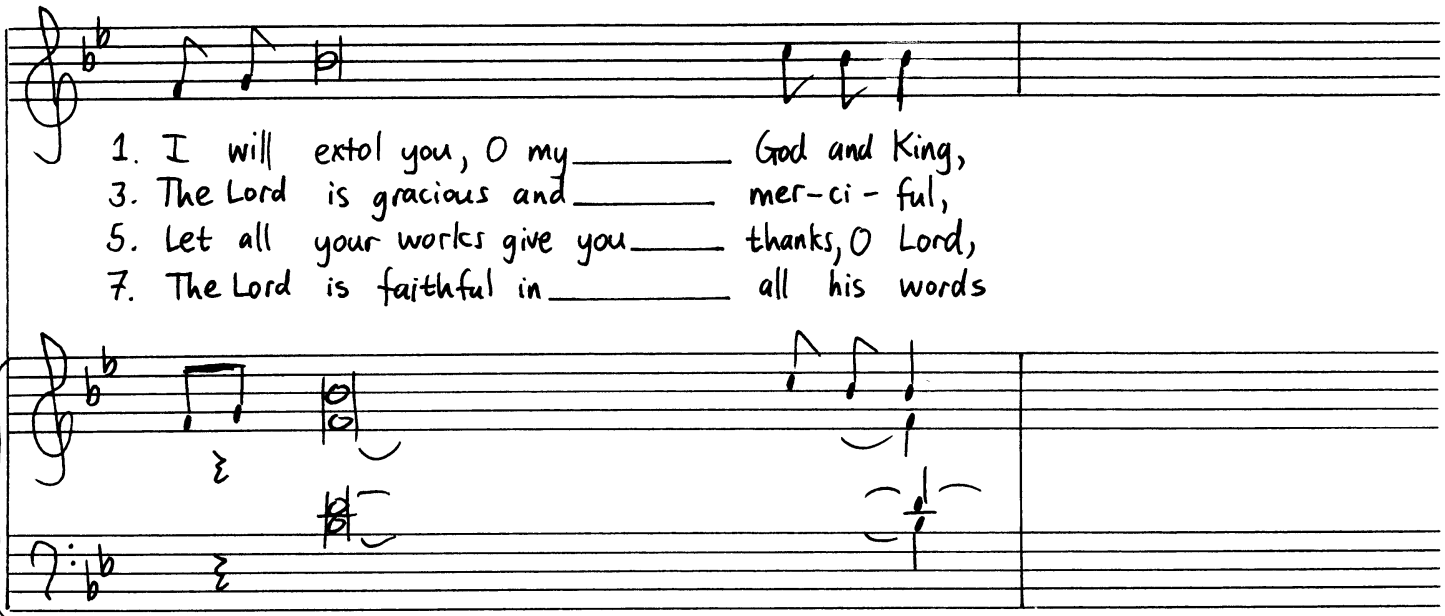 1. I will extol you, O my_________ God and King,
3. The Lord is gracious and________ mer-ci-ful,
5. Let all your works give you_____ thanks, O Lord,
7. The Lord is faithful in__________ all his words